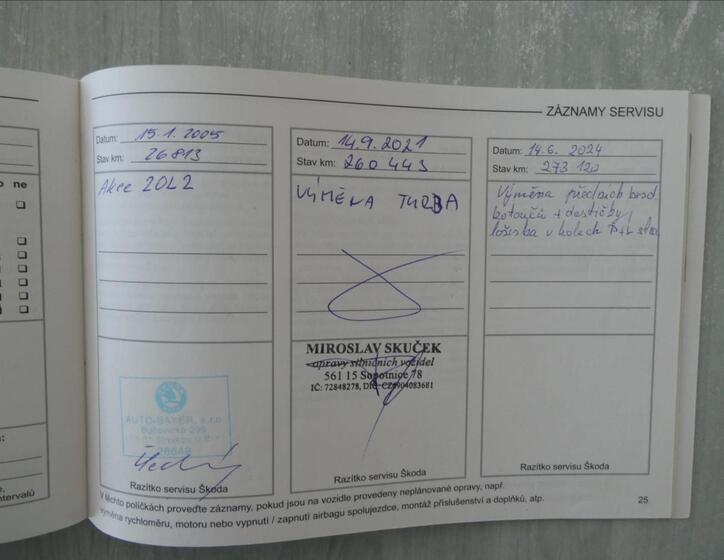 ZÁZNAMY SERVISU
Datum: 15.1.2005
Stav km: 26 813
Akce 20L2
AUTO-BAYER, s.r.o.
Razítko servisu Škoda
Datum: 14.9.2021
Stav km: 260 443
VÝMĚNA TURBA
MIROSLAV SKUČEK
opravy silničních vozidel
561 15 Sopotnice 78
IČ: 72848278, DIČ: CZ6904083681
Razítko servisu Škoda
Datum: 14.6.2024
Stav km: 273 120
Výměna předních brzd.
kotoučů + destičky
ložiska v kolech P+L
Razítko servisu Škoda
V těchto políčkách proveďte záznamy, pokud jsou na vozidle provedeny neplánované opravy, např.
výměna rychloměru, motoru nebo vypnutí / zapnutí airbagu spolujezdce, montáž příslušenství a doplňků, atp.
25
ne
ntervalů